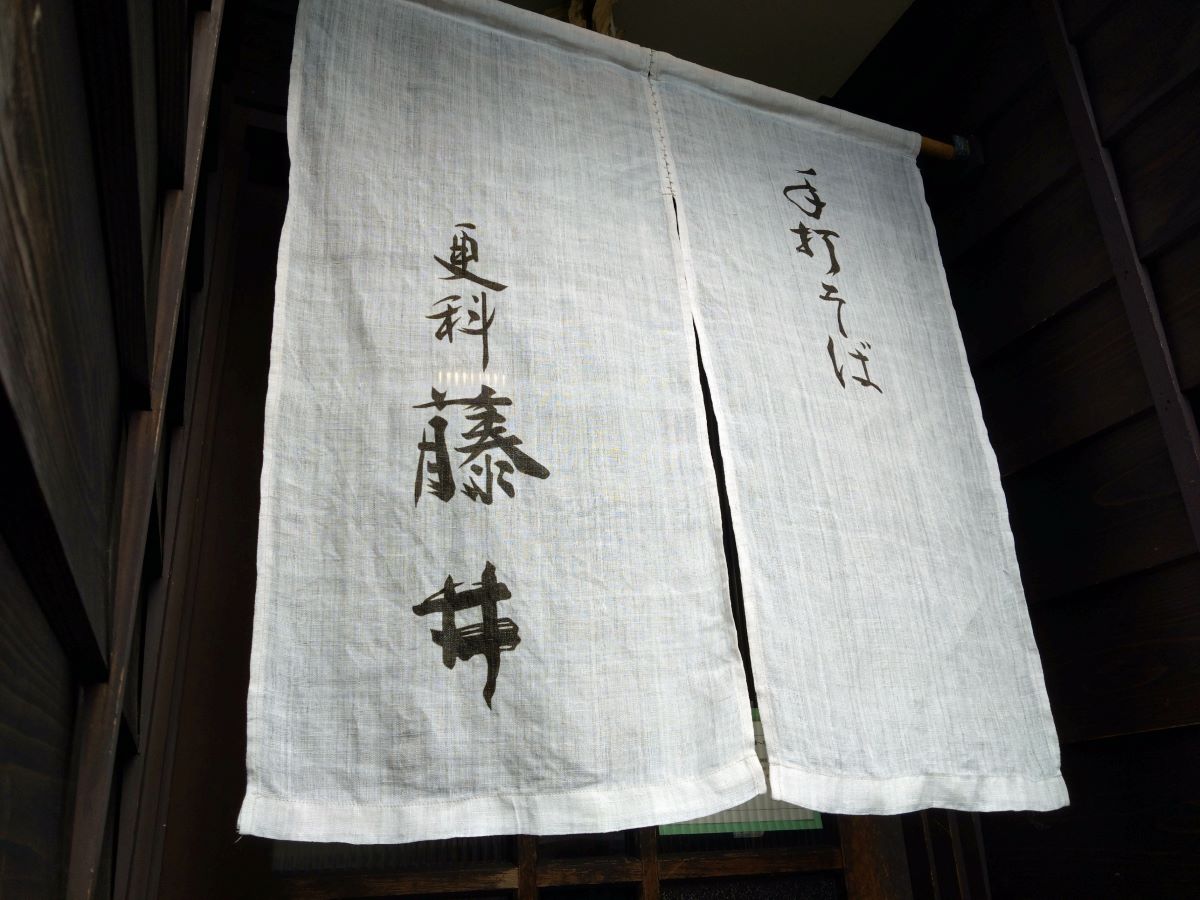 手打そば
更科
藤井